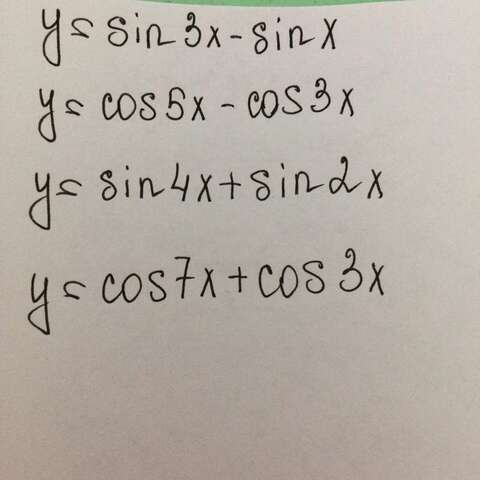 y = sin 3x - sin x
y = cos 5x - cos 3x
y = sin 4x + sin 2x
y = cos 7x + cos 3x